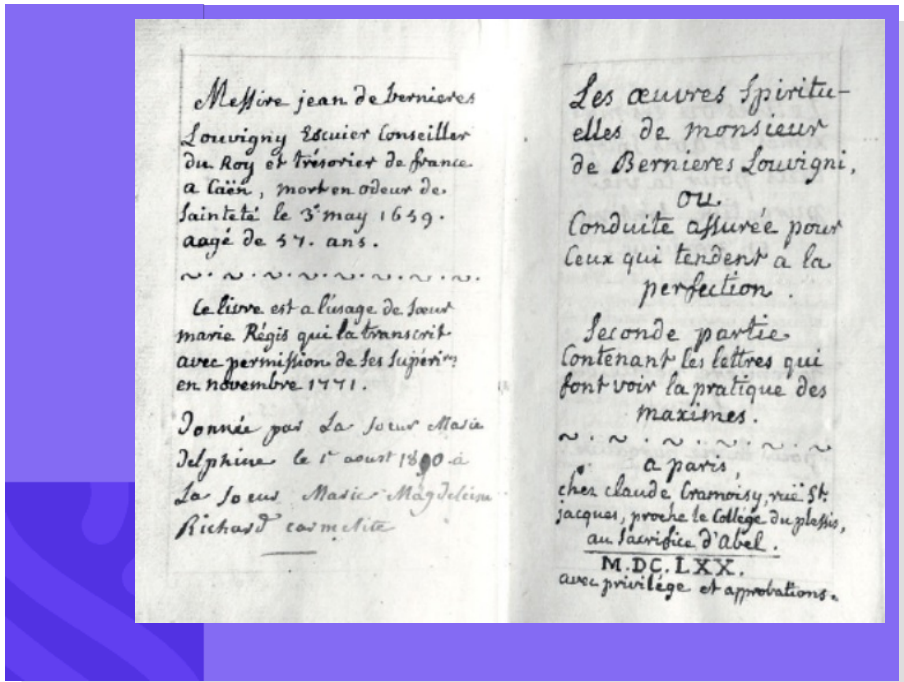 Messire jean de bernieres
Louvigny Escuier Conseiller
du Roy et trésorier de france
a Caën, mort en odeur de
sainteté le 3e may 1659.
aagé de 57. ans.
~.~.~.~.~.~.~.
Ce livre est a l'usage de sœur
marie Régis qui la transcrit
avec permission de ses supérirs
en novembre 1771.
Donnée par La soeur Marie
delphine le 1r aoust à
La soeur Marie Magdeleine
Richard carmelite
Les œuvres spiritu-
elles de monsieur
de Bernieres Louvigni,
ou.
Conduite assurée pour
Ceux qui tendent a la
perfection.
Seconde partie
Contenant les lettres qui
font voir la pratique des
maximes.
~.~.~.~.~.~.~
a paris,
chez claude Cramoisy, ruë St.
jacques, proche le Collége du plessis,
au sacrifice d'Abel.
M.DC.LXX.
avec privilége et approbations.